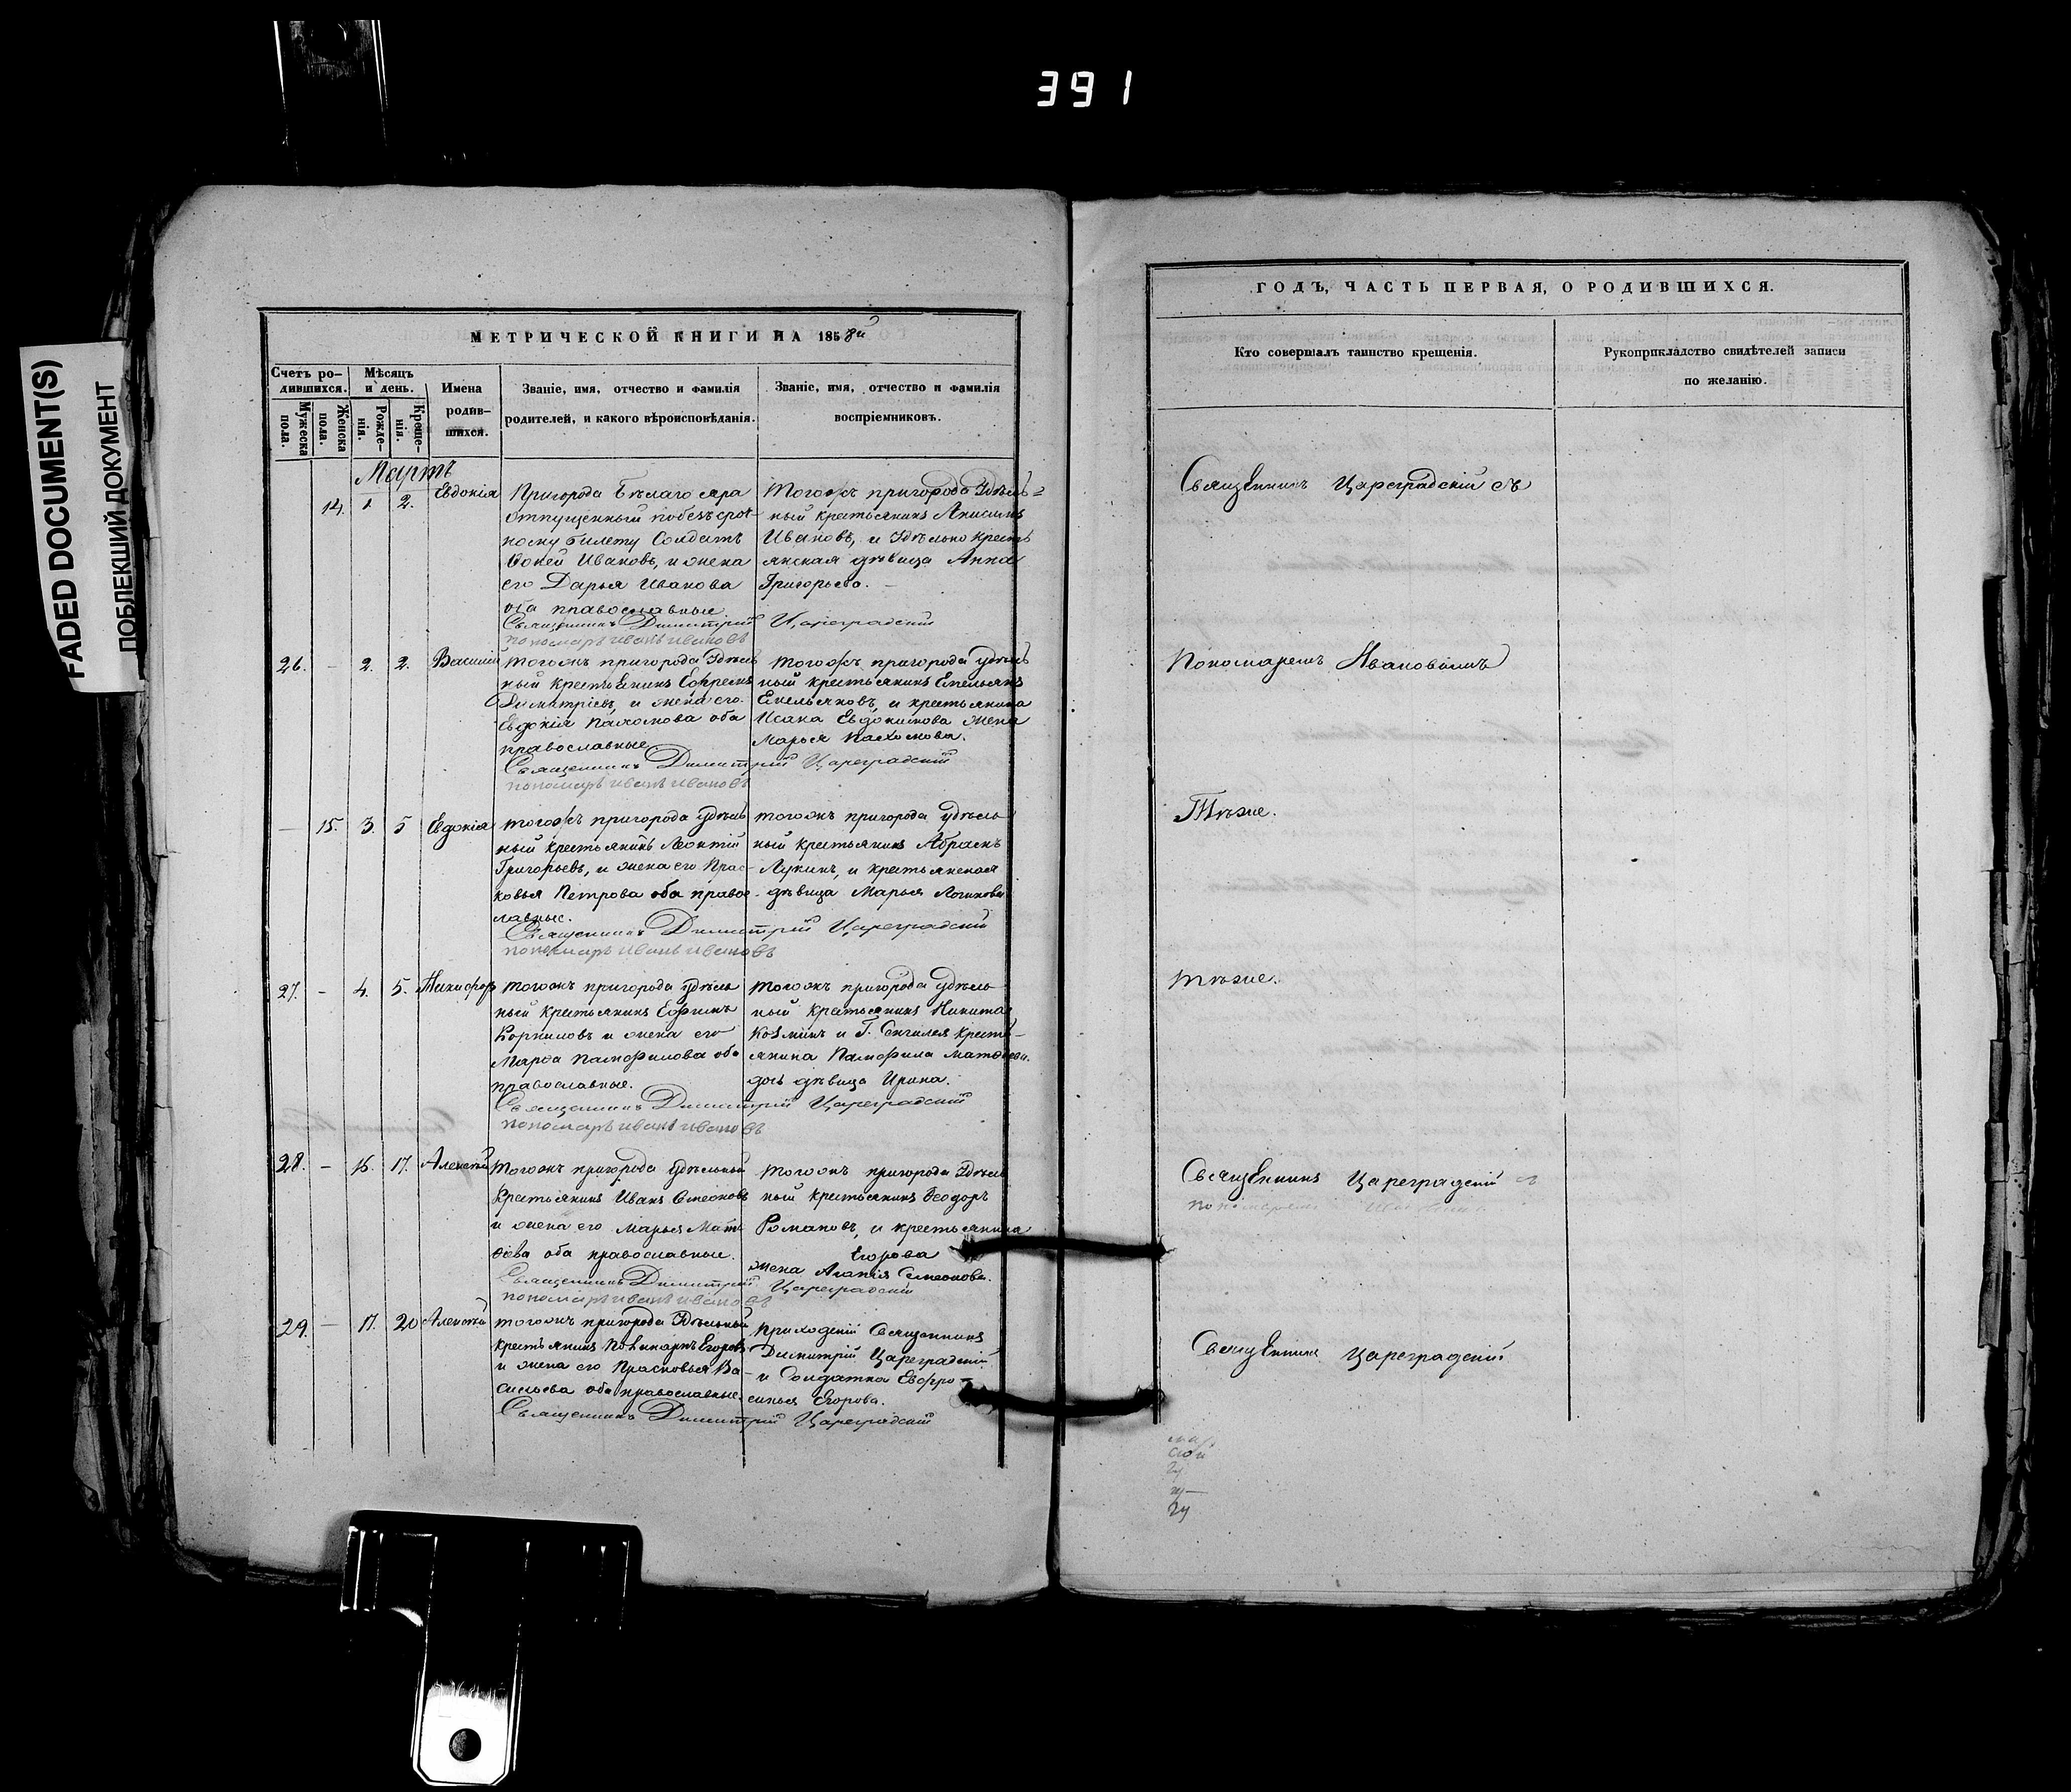 391
FADED DOCUMENT(S)
ПОБЛЕКШИЙ ДОКУМЕНТ
МЕТРИЧЕСКОЙ КНИГИ НА 1858й
Счетъ ро-
дившихся.
Мужеска
пола.
Женска
пола.
Мѣсяцъ
и день.
Рожде-
нія.
Креще-
нія.
Имена
родив-
шихся.
Званіе, имя, отчество и фамилія
родителей, и какого вѣроисповѣданія.
Званіе, имя, отчество и фамилія
воспріемниковъ.
Мартъ
14. 1. 2. Евдокія
Пригорода Бѣлаго яра
отпущенный по безсроч-
ному билету Солдатъ
Ивановъ, и жена
его Дарья Иванова
оба православные.
Тогожъ пригорода Удѣль=
ный крестьянинъ Анисимъ
Ивановъ, и Удѣльно кресть
янская дѣвица Анна
Григорьева.
Священникъ Димитрій Цареградскій
пономарь иванъ ивановъ
26. – 2. 2. Василій
тогожъ пригорода Удѣль
ный крестьянинъ Ефремъ
Димитріевъ, и жена его
Евдокія Пахомова оба
православные
тогожъ пригорода удѣль
ный крестьянинъ Емельянъ
Емельяновъ, и крестьянина
Исака Евдокимова жена
Марья Пахомова.
Священникъ Димитрій Цареградскій
пономарь иванъ ивановъ
– 15. 3. 5 Евдокія
тогожъ пригорода удѣль
ный крестьянинъ Леонтій
Григорьевъ, и жена его Прас-
ковья Петрова оба правос-
лавные.
тогожъ пригорода удѣль
ный крестьянинъ Абрамъ
Лукинъ, и крестьянская
дѣвица Марья Логинова
Священникъ Димитрій Цареградскій
пономарь иванъ ивановъ
27. – 4. 5. Никифоръ
тогожъ пригорода удѣль
ный крестьянинъ Ефимъ
Корниловъ и жена его
Марфа Памфилова оба
православные.
тогожъ пригорода удѣль
ный крестьянинъ Никита
Козминъ и Г. Сенгилея кресть-
янина Памфила Матвѣева
дочь дѣвица Ирина.
Священникъ Димитрій Цареградскій
пономарь иванъ ивановъ
28. – 16. 17. Алексѣй
тогожъ пригорода удѣльный
крестьянинъ Иванъ Симеоновъ
и жена его Марья Мат
оба православные.
тогожъ пригорода Удѣль
ный крестьянинъ Ѳеодоръ
Романовъ, и крестьянина
Егорова
жена Агапія Симеонова.
Священникъ Димитрій Цареградскій
пономарь иванъ ивановъ
29. – 17. 20 Алексѣй
тогожъ пригорода Удѣльный
крестьянинъ Егоровъ
и жена его Прасковья Ва-
сильева оба православные.
приходскій Священникъ
Димитрій Цареградскій
и Солдатка Евфро-
синья Егорова.
Священникъ Димитрій Цареградскій
ГОДЪ, ЧАСТЬ ПЕРВАЯ, О РОДИВШИХСЯ.
Кто совершалъ таинство крещенія.
Рукоприкладство свидѣтелей записи
по желанію.
Священникъ Цареградскій съ
Пономаремъ Ивановымъ
Тѣже.
тѣже.
Священникъ Цареградскій съ
пономаремъ
Священникъ Цареградскій